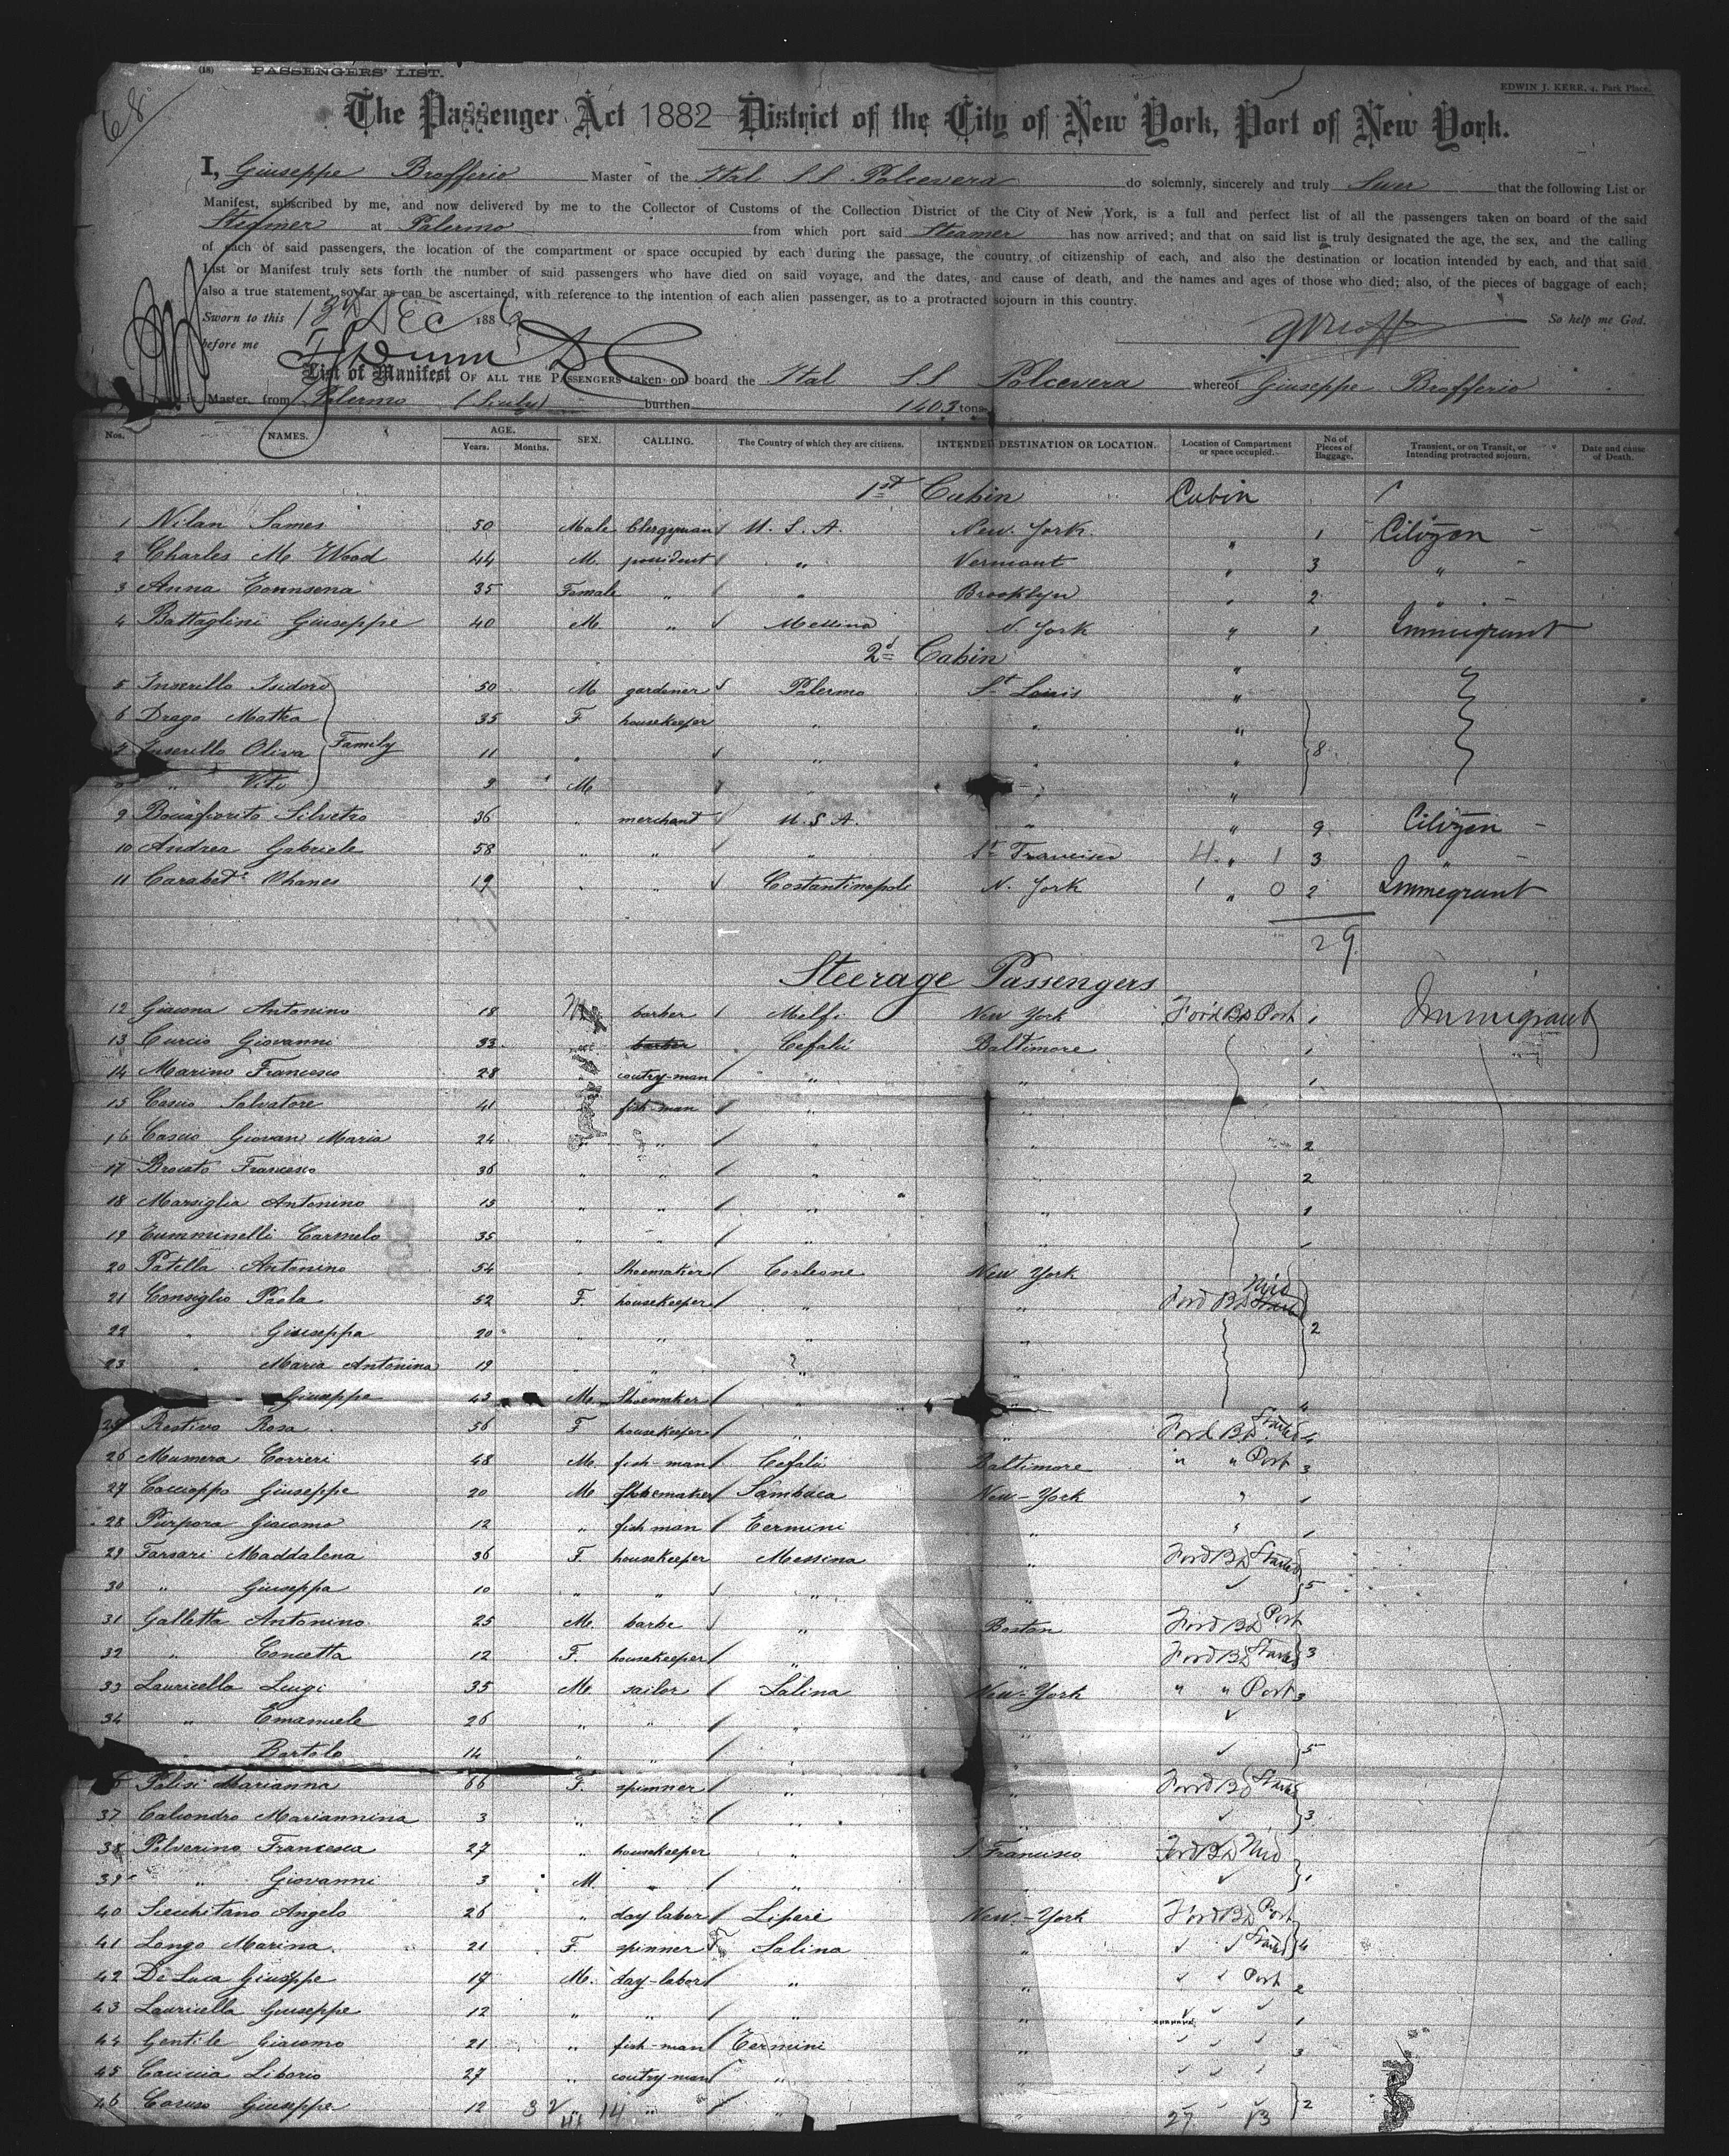 68
(18) PASSENGERS' LIST.
EDWIN J. KERR, 4, Park Place.
The Passenger Act 1882 District of the City of New York, Port of New York.
I, Giuseppe Brofferio Master of the Ital SS Polcevera do solemnly, sincerely and truly Swer that the following List or
Manifest, subscribed by me, and now delivered by me to the Collector of Customs of the Collection District of the City of New York, is a full and perfect list of all the passengers taken on board of the said
Steamer at Palermo from which port said Steamer has now arrived; and that on said list is truly designated the age, the sex, and the calling
of each of said passengers, the location of the compartment or space occupied by each during the passage, the country of citizenship of each, and also the destination or location intended by each, and that said
List or Manifest truly sets forth the number of said passengers who have died on said voyage, and the dates, and cause of death, and the names and ages of those who died; also, of the pieces of baggage of each;
also a true statement, so far as can be ascertained, with reference to the intention of each alien passenger, as to a protracted sojourn in this country.
Sworn to this 13th DEC 1886 So help me God.
before me
List of Manifest OF ALL THE PASSENGERS taken on board the Ital SS Polcevera whereof Giuseppe Brofferio
is Master, from Palermo (Sicily) burthen 1403 tons
Nos. NAMES. AGE. Years. Months. SEX. CALLING. The Country of which they are citizens. INTENDED DESTINATION OR LOCATION. Location of Compartment or space occupied. No of Pieces of Baggage. Transient, or on Transit, or Intending protracted sojourn. Date and cause of Death.
1st Cabin Cabin
1 Nilan James 50 Male Clergyman U. S. A. New. York. " 1 Citizen -
2 Charles M. Wood 44 M. possident " Vermont " 3 " -
3 Anna 35 Female " " Brooklyn " 2 " -
4 Battaglini Giuseppe 40 M. " Messina N. York " 1 Immigrant
2d Cabin "
5 Inserillo Isidoro 50 M gardener Palermo St Louis "
6 Drago Mattea 35 F housekeeper " " "
7 Inserillo Oliva Family 11 " " " " 8
8 " Vito 9 M " " "
9 Bonafiorito Silvestro 36 " merchant U. S A. " " 9 Citizen -
10 Andrea Gabriele 58 " " " St Francisco 4 " 1 3 " -
11 Carabet Ohanes 19 " " Costantinopoli N. York 1 " 0 2 Immegrant
29
Steerage Passengers
12 Giacona Antonino 18 M barber Melfi New York Ford BD Port 1 Immigrant
13 Curcio Giovanni 33 barber Cefalù Baltimore 1
14 Marino Francesco 28 coutry-man " " 1
15 Cascio Salvatore 41 fish man " "
16 Cascio Giovan Maria 24 " " " 2
17 Brocato Francesco 36 " " " " 2
18 Marsiglia Antonino 15 " " " " 1
19 Tumminelli Carmelo 35 " " " "
20 Patella Antonino 54 " Shoemaker Corleone New York
21 Consiglio Paola 52 F. housekeeper " " Ford BD Mid
22 " Giuseppa 20 " " " " 2
23 " Maria Antonina 19 " " " "
Giuseppe 43 M. Shoemaker " " "
25 Restivo Rosa 56 F housekeeper " " Ford BD Starbd 4
26 Mamera Correri 48 M. fish man Cefalù Baltimore " " Port 3
27 Cacioppo Giuseppe 20 M. Shoemaker Sambuca New-York " 1
28 Purpora Giacomo 12 " fish man Termini " " 1
29 Farsari Maddalena 36 F. housekeeper Messina " Ford BD Starbd
30 " Giuseppa 10 " " " " ✓ 5
31 Galletta Antonino 25 M. barbe " Boston Ford BD Port
32 " Concetta 12 F. housekeeper " " Ford BD Starbd 3
33 Lauricella Luigi 35 M. sailor Salina New-York " " Port 3
34 " Emanuele 26 " " " " ✓
" Bartolo 14 " " " ✓ 5
Palisi Marianna 66 F. spinner " " Ford BD Starbd
37 Caliondro Mariannina 3 " " " ✓ 3
38 Polverino Francesca 27 " housekeeper " S. Francisco Ford BD Mid
39 " Giovanni 3 M. " " " ✓ 1
40 Secchitano Angelo 26 " day labor Lipari New-York Ford BD Port
41 Longo Marina 21 F. spinner Salina " ✓ ✓ Starbd 4
42 De Luca Giuseppe 17 M. day-labor " " ✓ ✓ Port 2
43 Lauricella Giuseppe 12 " " " " ✓ ✓ ✓ 1
44 Gentile Giacomo 21 " fish-man Termini " ✓ ✓ ✓ 3
45 Caciccia Liborio 27 " coutry-man " " ✓ ✓ ✓
46 Caruso Giuseppe 12 32 " 14 " " " ✓ ✓ ✓ 2
27 13